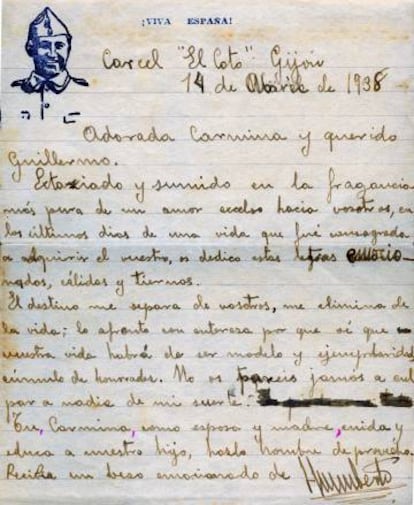 ¡VIVA ESPAÑA!
Carcel "El Coto" Gijón
14 de Marzo de 1938
Adorada Carmina y querido
Guillermo.
Extasiado y sumido en la fragancia
más pura de un amor excelso hacia vosotros, en
los últimos días de una vida que fué consagrada
a adquirir el vuestro, os dedico estas letras emocio-
nadas, cálidas y tiernas.
El destino me separa de vosotros, me elimina de
la vida; lo afronto con entereza por que sí que
vuestra vida habrá de ser modelo y ejemplaridad
cúmulo de honradez. No os pareis jamás a cul
par a nadie de mi suerte.
Tu, Carmina, como esposa y madre, cuida y
educa a nuestro hijo, hazlo hombre de provecho.
Recibe un beso emocionado de Humberto